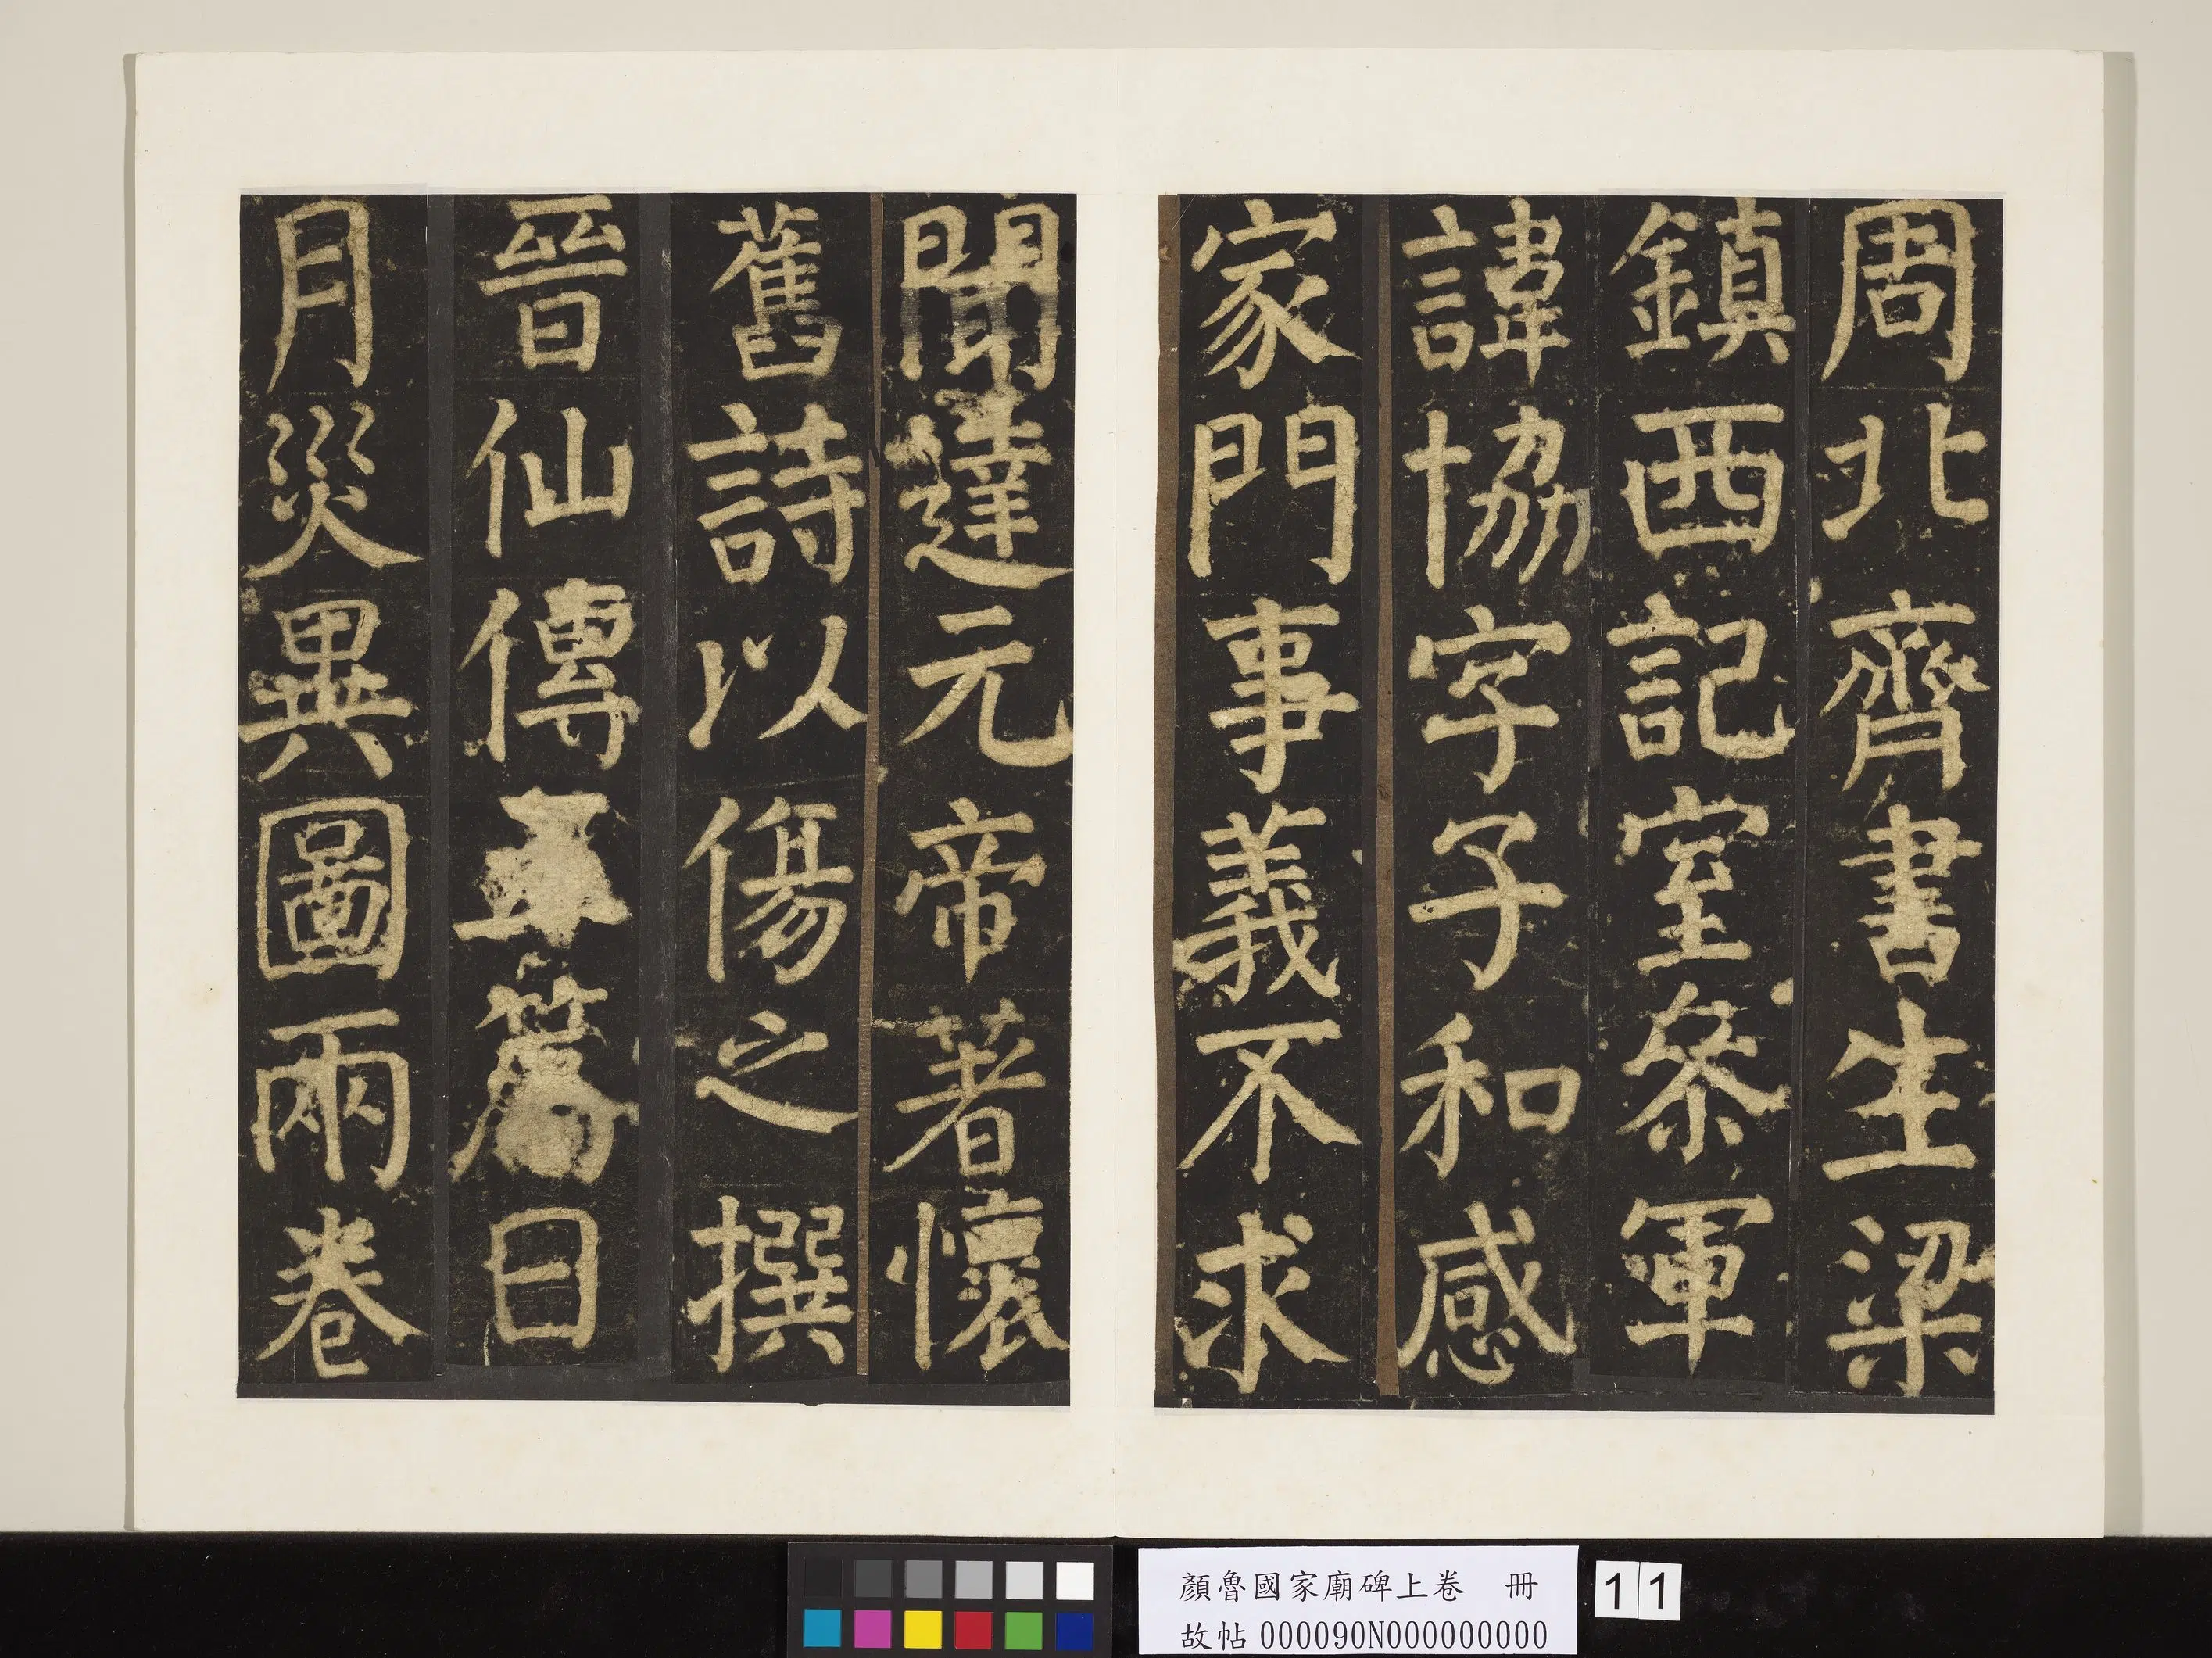 周北齊書生梁
鎮西記室叅軍
諱協字子和感
家門事義不求
聞達元帝著懷
舊詩以傷之撰
晉仙傳五篇日
月災異圖兩卷
顏魯國家廟碑上卷 冊
故帖000090N000000000
11